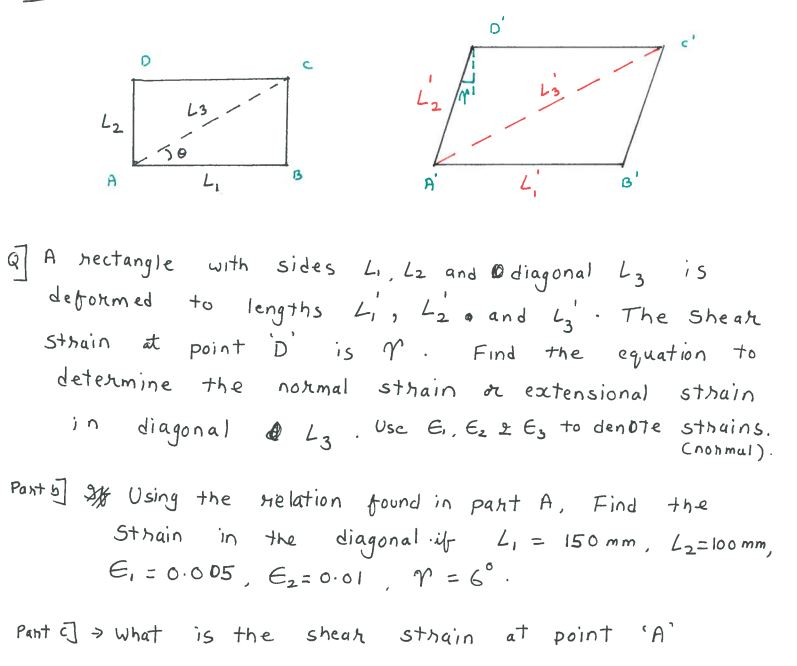 D
C
L2
L3
θ
A
L1
B
D'
C'
L2'
γ
L3'
A'
L1'
B'
Q] A rectangle with sides L1, L2 and diagonal L3 is
deformed to lengths L1', L2' and L3'. The shear
strain at point 'D' is γ. Find the equation to
determine the normal strain or extensional strain
in diagonal L3. Use ε1, ε2 & ε3 to denote strains.
(normal).
Part b] Using the relation found in part A, Find the
strain in the diagonal if L1 = 150 mm, L2=100 mm,
ε1 = 0.005, ε2 = 0.01, γ = 6°.
Part C] → What is the shear strain at point 'A'